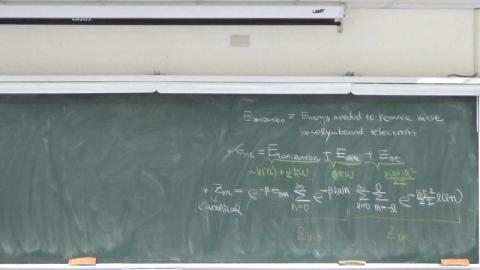 E_ionization = Energy needed to remove most
loosely-bound electrons
* E_int = E_ionization + E_vib + E_rot
* Z_int = e^{-β ε_ion} Σ_{n=0}^{∞} e^{-βħωn} Σ_{l=0}^{∞} Σ_{m=-l}^{l} e^{-βħ²/2I l(l+1)}
canonical
Z_vib Z_rot